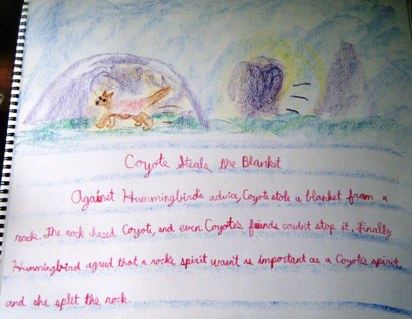 Coyote Steals the Blanket
Against Hummingbird's advice, Coyote stole a blanket from a
rock. The rock chased Coyote, and even Coyote's friends couldn't stop it. Finally
Hummingbird agreed that a rock's spirit wasn't as important as a Coyote's spirit
and she split the rock.